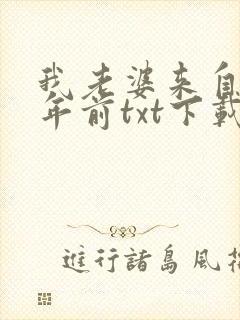 我老婆来自
年前txt下載
進行諸島風